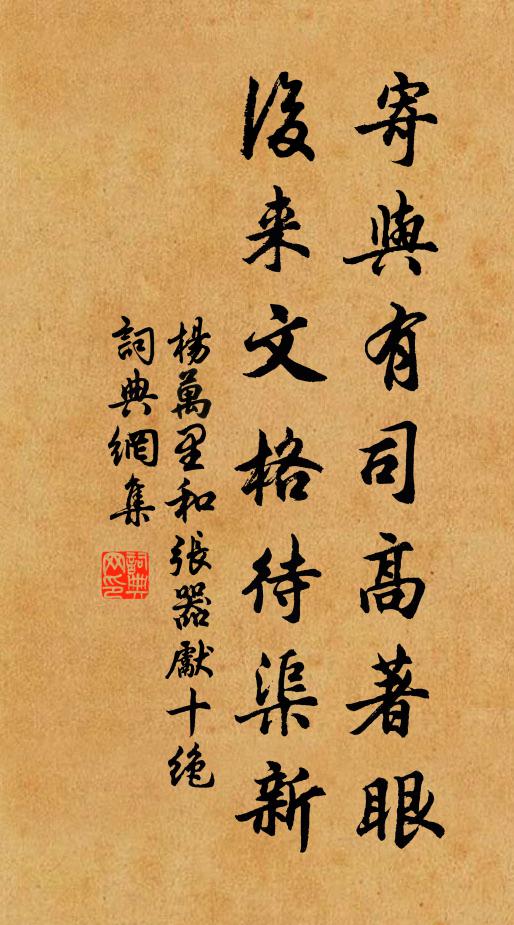 寄與有司高著眼
後来文格待渠新
楊萬里和張器獻十絶
詞典網集
詞典網印